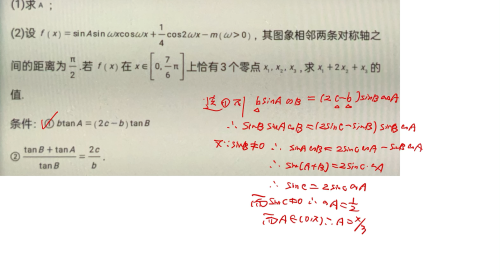 (1)求A;
(2)设 f(x)=sinAsinωxcosωx+1/4cos2ωx−m(ω>0),其图象相邻两条对称轴之
间的距离为π/2.若 f(x)在x∈[0,7/6π]上恰有3个零点 x₁,x₂,x₃,求x₁+2x₂+x₃的
值.
条件:①btanA=(2c−b)tanB
② (tanB+tanA)/tanB=2c/b.
选①则 bsinAcosB=(2c-b)sinBcosA
∴ sinBsinAcosB=(2sinC-sinB)sinBcosA
又∵sinB≠0 ∴ sinAcosB=2sinCcosA-sinBcosA
∴ sin(A+B)=2sinC·cosA
∴ sinC=2sinCcosA
而sinC≠0 ∴cosA=1/2
而A∈(0,π)∴A=π/3